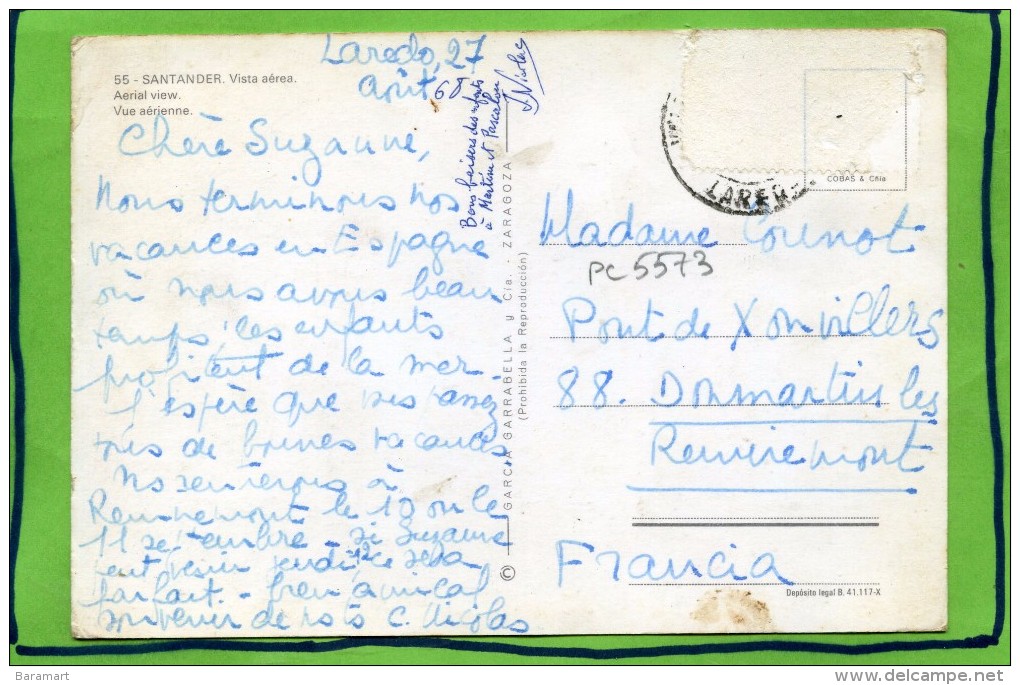 55 - SANTANDER. Vista aérea.
Aerial view.
Vue aérienne.
Laredo, 27
Août 68
Chère Suzanne,
Nous terminons nos
vacances en Espagne
où nous avons beau
temps, les enfants
profitent de la mer.
J'espère que vous passez
tous de bonnes vacances,
Ns serons à
Remiremont le 10 ou le
11 septembre - si Suzanne
peut venir lundi 12 ce sera
parfait. - bien amical
souvenir de ns ts C. Nicolas
Bons baisers des enfants
à Martine et Pascalou
J. Nicolas
GARCIA GARRABELLA y Cía. - ZARAGOZA
(Prohibida la Reproducción)
©
LAREDO
COBAS & Cñia
Madame Counot
PC5573
Pont de Xonvillers
88. Dommartin les
Remiremont
Francia
Depósito legal B. 41.117-X
Baramart
www.delcampe.net